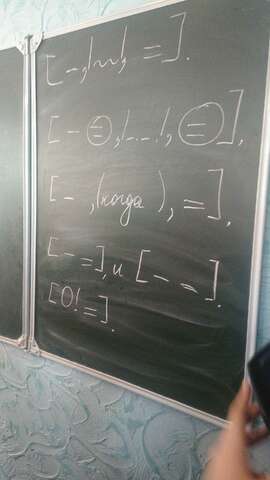 [–,|~|, =].
[– (=),|_._.|, (=)],
[–,(когда), =],
[– =], и [– =].
[О! =].